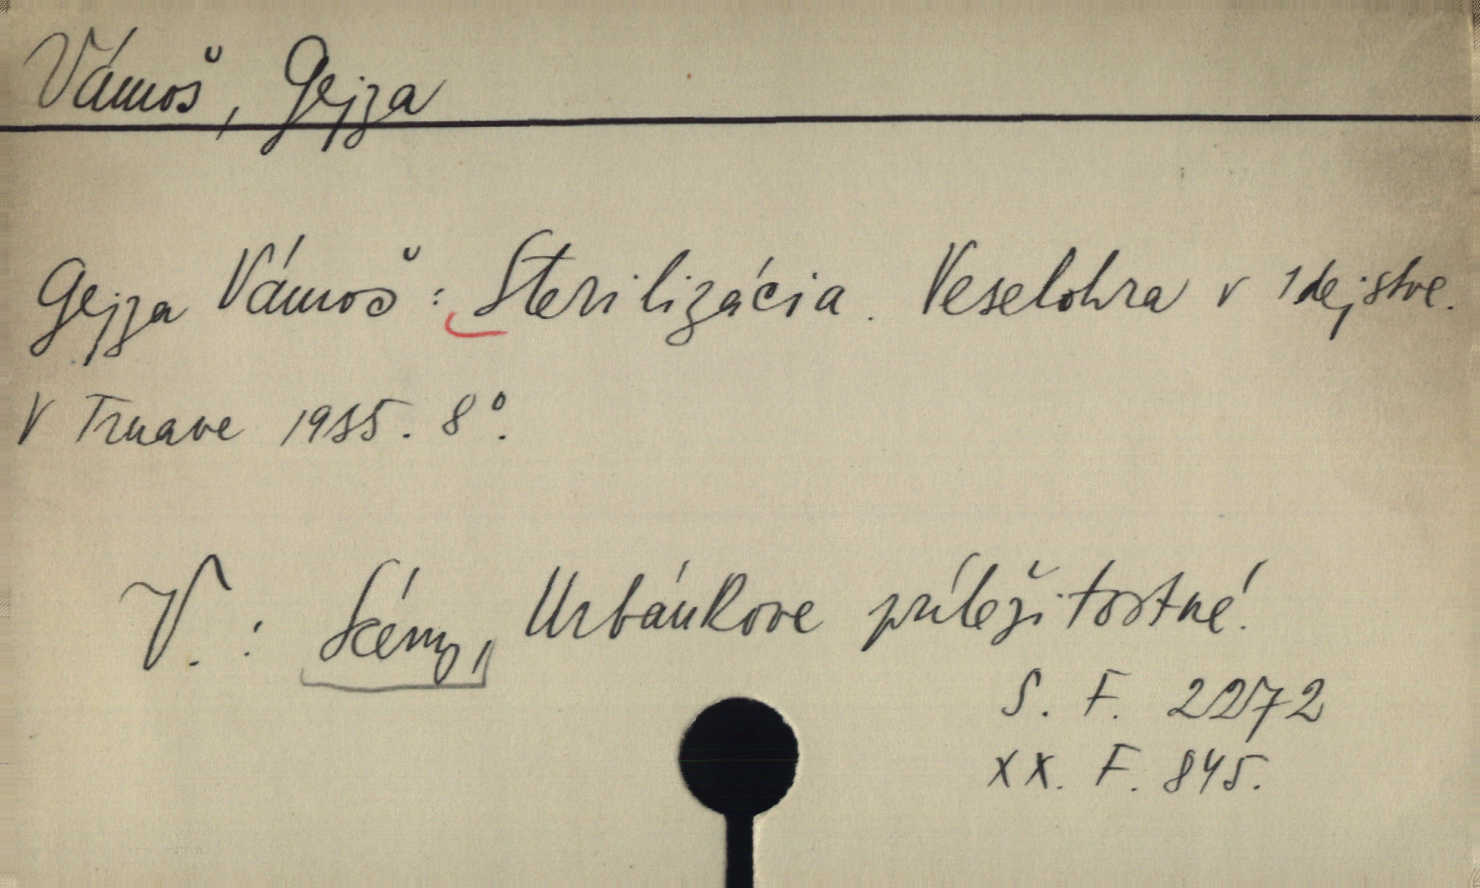 Vámoš, Gejza
Gejza Vámoš: Sterilizácia. Veselohra v 1 dejstve.
V Trnave 1935. 8°.
V.: Scény, Urbánkove príležitostné.
S. F. 2272
XX. F. 845.